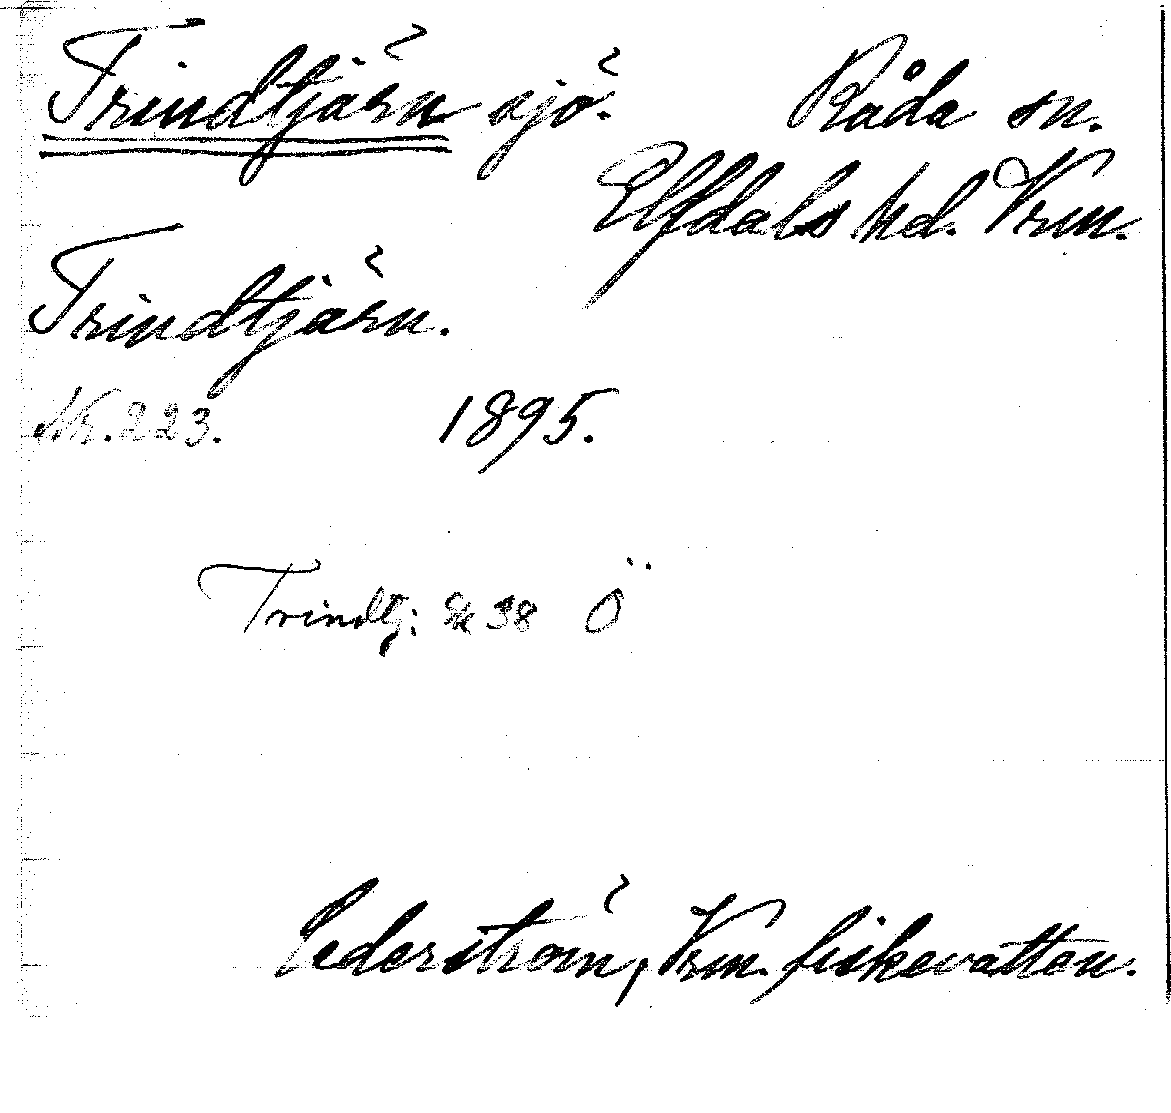 Trindtjärn sjö. Råda sn.
Elfdals hd. Vrm.
Trindtjärn.
Nr. 223. 1895.
Trindtj: 38 Ö
Cederström, Vrm. fiskevatten.